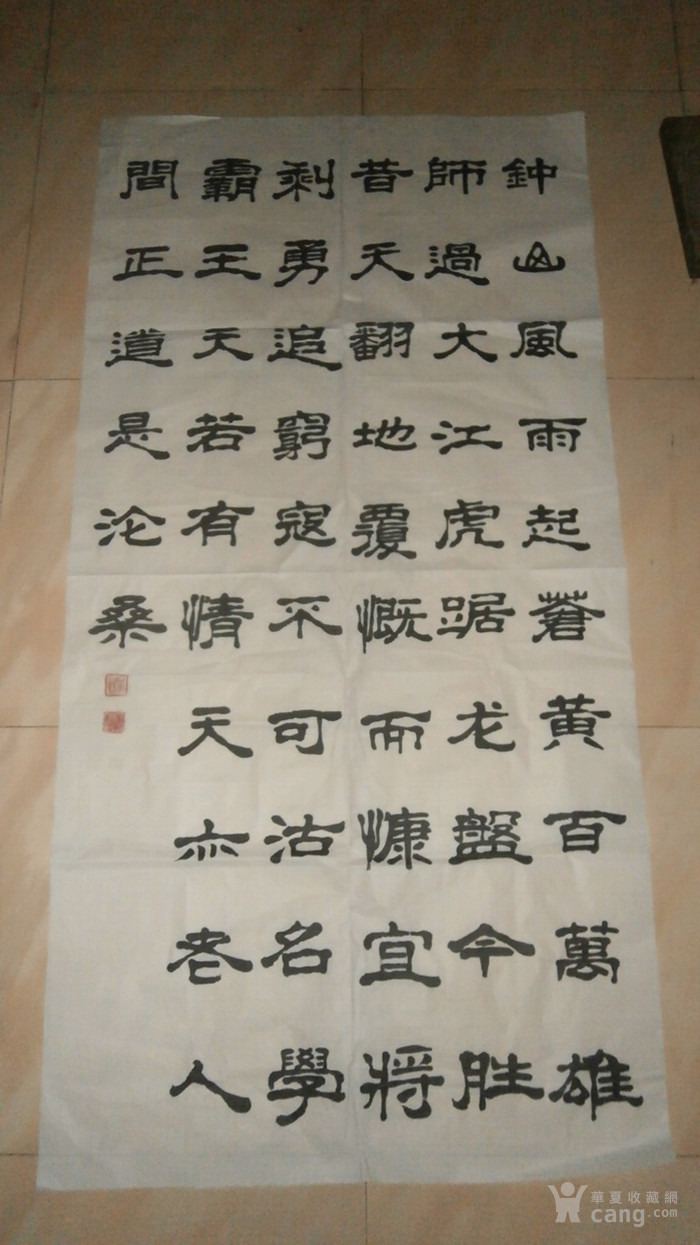 鈡山風雨起蒼黄百萬雄
師過大江虎踞龙盤今胜
昔天翻地覆慨而慷宜將
剩勇追窮寇不可沽名學
霸王天若有情天亦老人
間正道是沧桑
華夏收藏網
cang.com